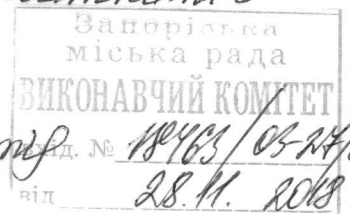 Запорізька
міська рада
ВИКОНАВЧИЙ КОМІТЕТ
вхід. № 18463/03-27/
від 28.11. 2018